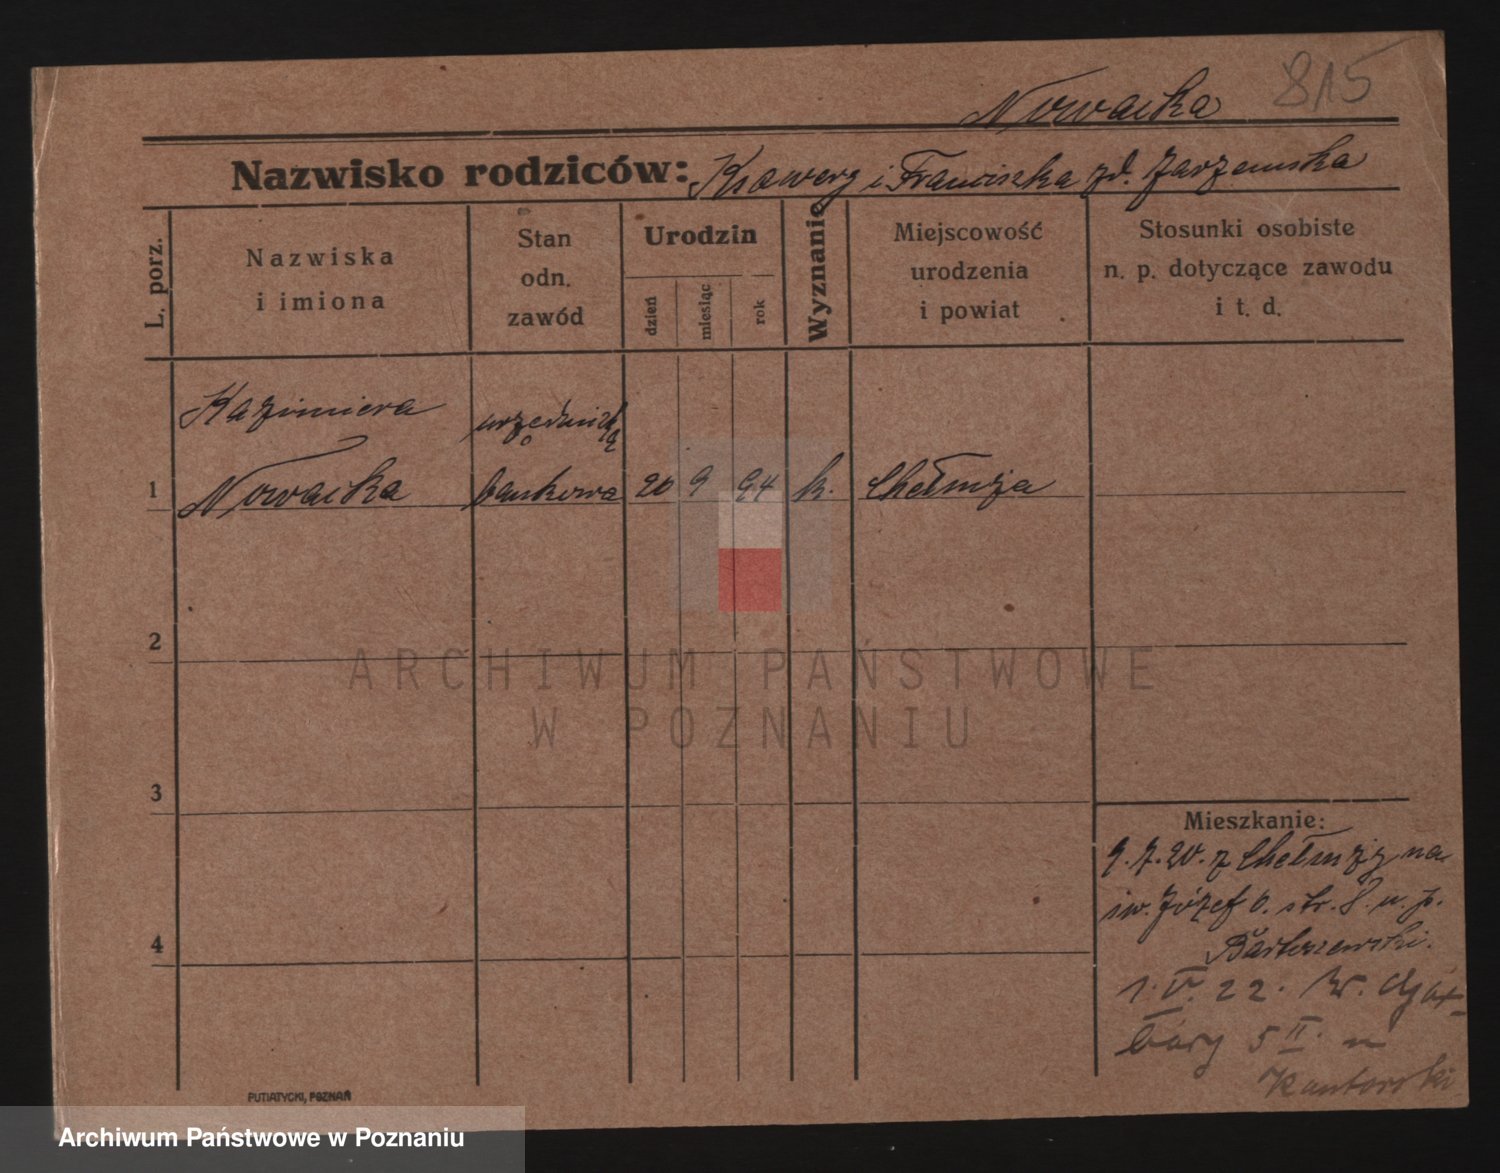 Nowacka 815
Nazwisko rodziców: Ksawery i Franciszka zd. Zarzemska
L. porz.
Nazwiska
i imiona
Stan
odn.
zawód
Urodzin
dzień
miesiąc
rok
Wyznanie
Miejscowość
urodzenia
i powiat
Stosunki osobiste
n. p. dotyczące zawodu
i t. d.
Kazimiera urzędniczka
1 Nowacka bankowa 20 9 94 k. Chełmża
2
3
4
Mieszkanie:
9.7.20. z Chełmży na
św. Józefa. str. 8 u p.
Bartoszewski.
1.V.22. W. Gar-
bary 5 II. u
Kantorski
PUTIATYCKI, POZNAŃ
ARCHIWUM PAŃSTWOWE
W POZNANIU
Archiwum Państwowe w Poznaniu